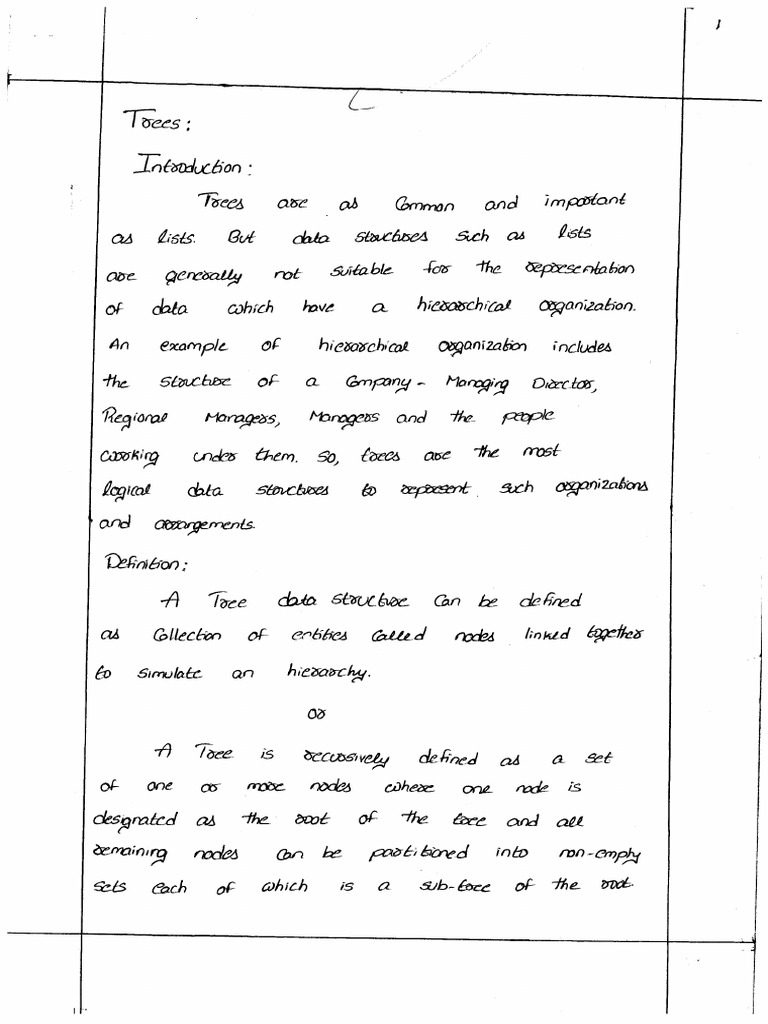 1
Trees:
Introduction:
Trees are as Common and important
as lists. But data structures such as lists
are generally not suitable for the representation
of data which have a hierarchical organization.
An example of hierarchical organization includes
the structure of a Company - Managing Director,
Regional Managers, Managers and the people
working under them. So, trees are the most
logical data structures to represent such organizations
and arrangements.
Definition:
A Tree data structure Can be defined
as Collection of entities Called nodes linked together
to simulate an hierarchy.
or
A Tree is recursively defined as a set
of one or more nodes where one node is
designated as the root of the tree and all
remaining nodes Can be partitioned into non-empty
sets each of which is a sub-tree of the root.